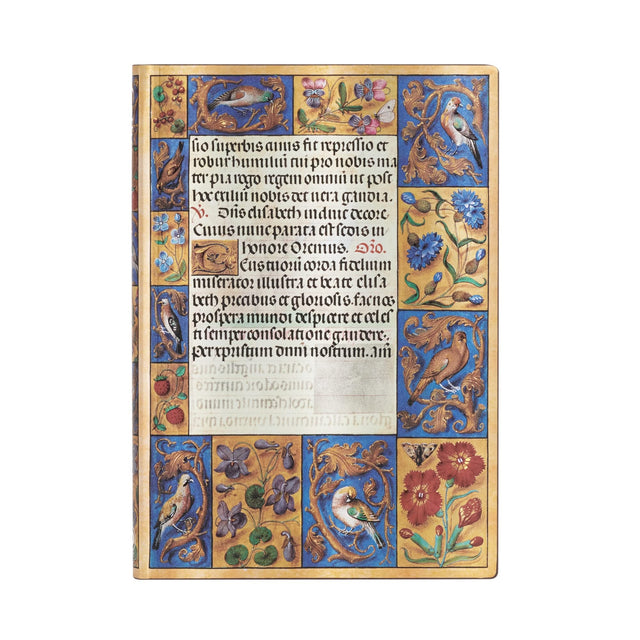 sio superbis cuius fit repressio et
robur humiliū tui pro nobis ma
ter pia rogo regem omniū ut post
hoc exiliū nobis det vera gaudia.
V. Diīs elisabeth induit decore
Cuius nunc parata est sedis in
honore Oremus. Oro.
Eus tuorū corda fidelium
miserator illustra et beate elisa
beth precibus et gloriosis. fac nos
prospera mundi despicere et celes
ti semper consolatione gaudere.
Per xpristum dnm̄ nostrum. am̄